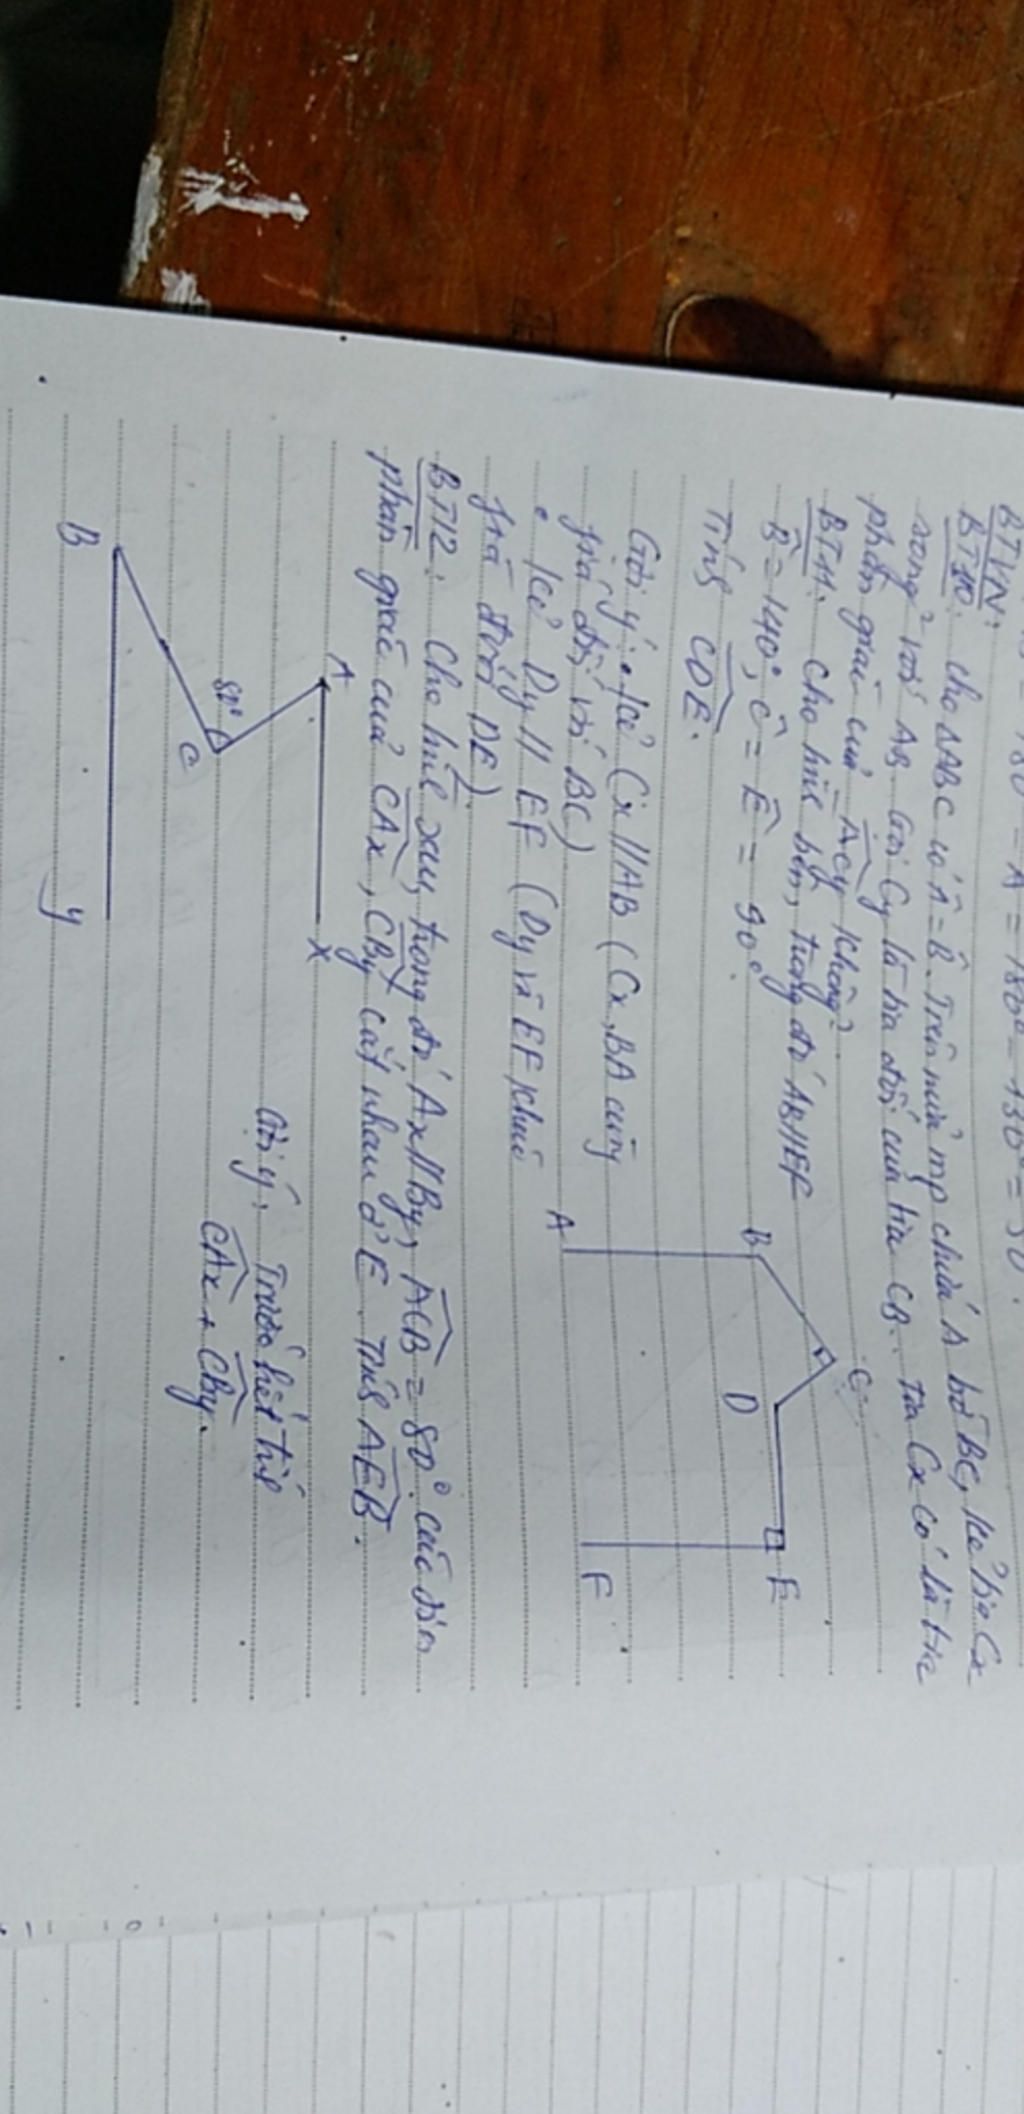 = 180° - 130° = 50°.
BTVN:
BT10: Cho ΔABC có Â = B̂. Trên nửa mp chứa A bờ BC, kẻ tia Cx
song² với AB. Gọi Cy là tia đối của tia CB. Tia Cx có là tia
phân giác của ACy không?
BT11: Cho hình bên, trong đó AB//EF
B̂ = 140°, Ĉ = Ê = 90°.
Tính CDE.
Gợi ý: • Kẻ Cx//AB (Cx, BA cùng
phía đối với BC)
• Kẻ Dy // EF (Dy và EF khác
phía đối DE).
A
B
C
D
E
F
BT12: Cho hình sau, trong đó Ax//By, ACB = 80°. Các tia
phân giác của CAx, CBy cắt nhau ở E. Tính AEB.
A
x
80°
C
B
y
Gợi ý: Trước hết tính
CAx + CBy.